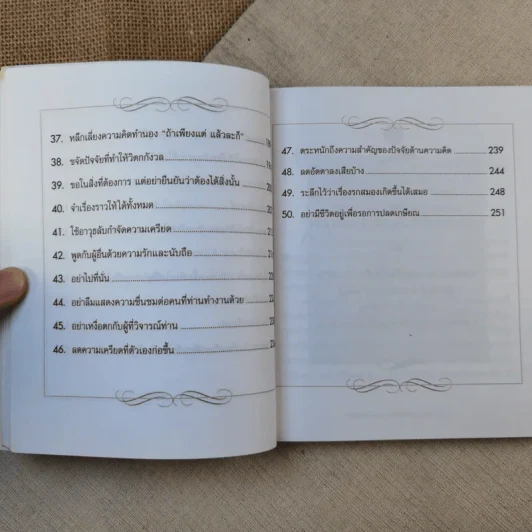 37. หลีกเลี่ยงความคิดทำนอง "ถ้าเพียงแต่ แล้วละก็"
38. ขจัดปัจจัยที่ทำให้วิตกกังวล
39. ขอในสิ่งที่ต้องการ แต่อย่ายืนยันว่าต้องได้สิ่งนั้น
40. จำเรื่องราวให้ได้ทั้งหมด
41. ใช้อาวุธลับกำจัดความเครียด
42. พูดกับผู้อื่นด้วยความรักและนับถือ
43. อย่าไปที่นั่น
44. อย่าลืมแสดงความชื่นชมต่อคนที่ท่านทำงานด้วย
45. อย่าเหงื่อตกกับผู้ที่วิจารณ์ท่าน
46. ลดความเครียดที่ตัวเองก่อขึ้น
47. ตระหนักถึงความสำคัญของปัจจัยด้านความคิด 239
48. ลดอัตตาลงเสียบ้าง 244
49. ระลึกไว้ว่าเรื่องรกสมองเกิดขึ้นได้เสมอ 248
50. อย่ามีชีวิตอยู่เพื่อรอการปลดเกษียณ 251